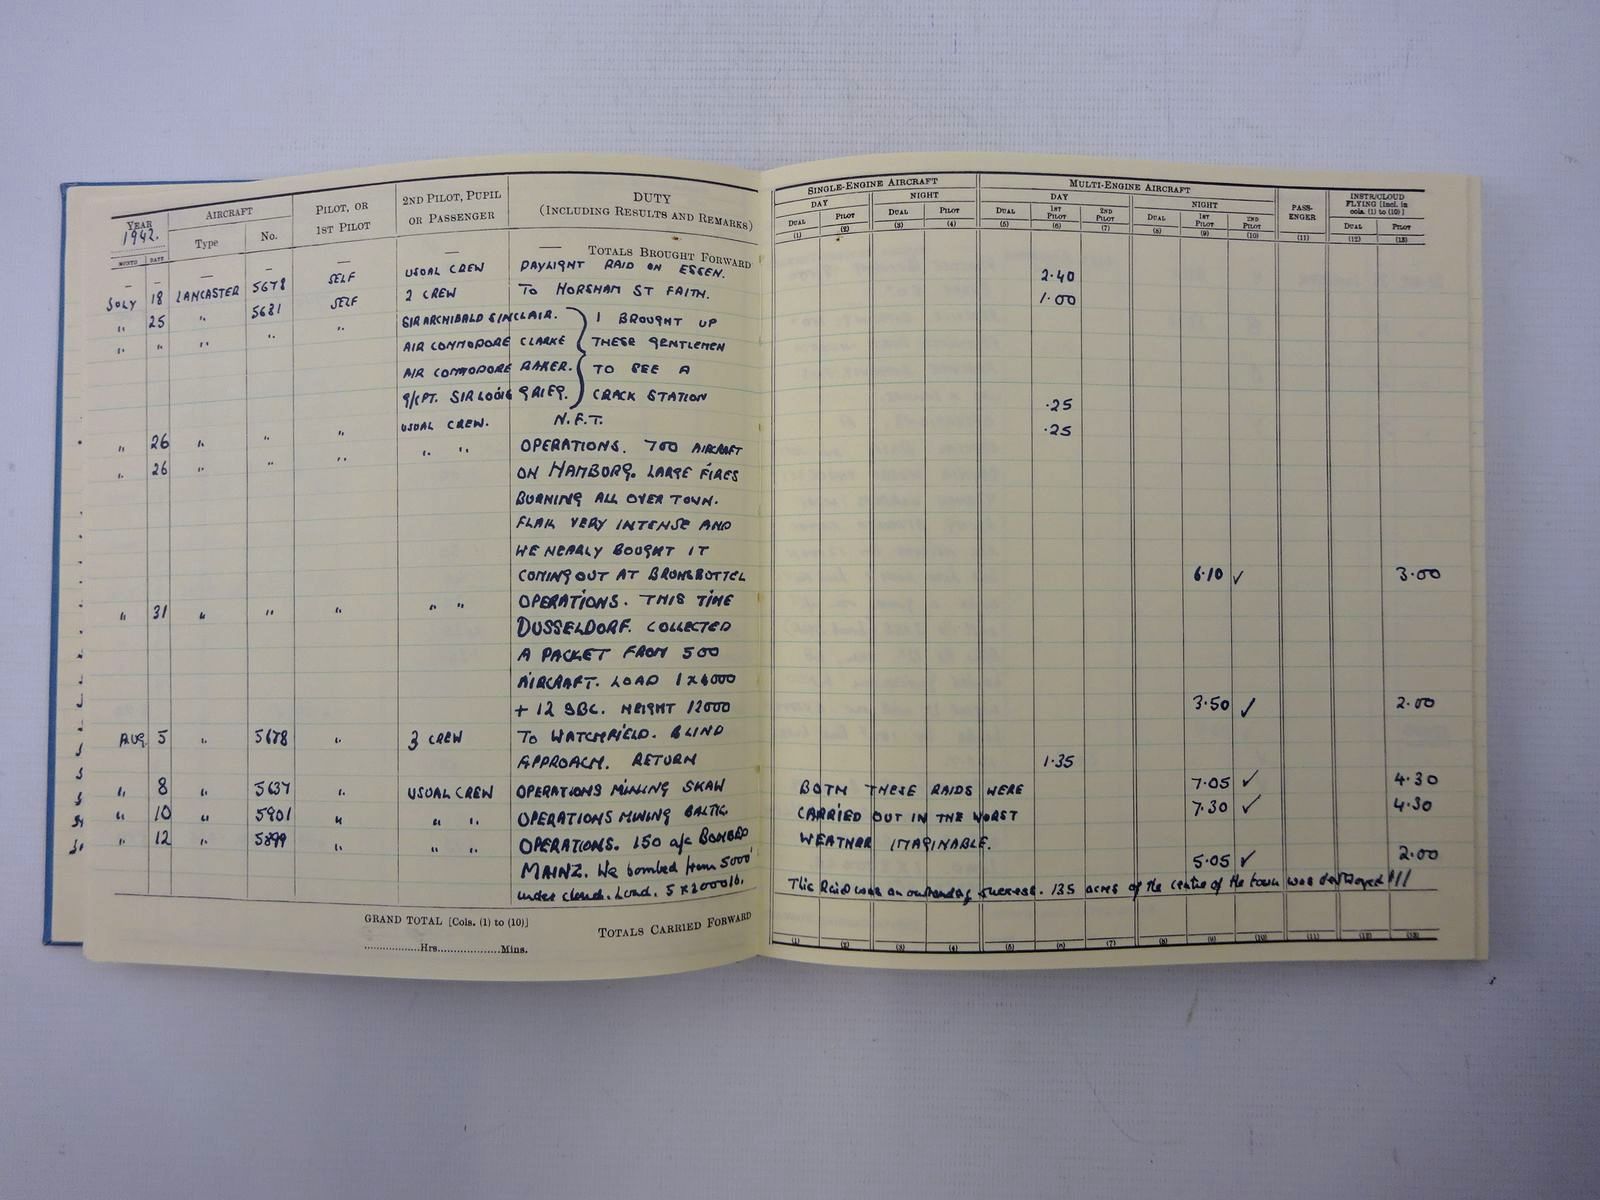 YEAR AIRCRAFT PILOT, OR 1ST PILOT 2ND PILOT, PUPIL OR PASSENGER DUTY (INCLUDING RESULTS AND REMARKS)
1942. Type No.
MONTH DATE
SINGLE-ENGINE AIRCRAFT MULTI-ENGINE AIRCRAFT PASS-ENGER INSTR/CLOUD FLYING [Incl. in cols. (1) to (10)]
DAY NIGHT DAY NIGHT
DUAL PILOT DUAL PILOT DUAL 1ST PILOT 2ND PILOT DUAL 1ST PILOT 2ND PILOT DUAL PILOT
(1) (2) (3) (4) (5) (6) (7) (8) (9) (10) (11) (12) (13)
— — — — — — — TOTALS BROUGHT FORWARD
JULY 18 LANCASTER 5678 SELF USUAL CREW DAYLIGHT RAID ON ESSEN. 2.40
" 25 " 5681 SELF 2 CREW TO HORSHAM ST FAITH. 1.00
" " " " " SIR ARCHIBALD SINCLAIR. I BROUGHT UP
AIR COMMODORE CLARKE THESE GENTLEMEN
AIR COMMODORE BAKER. TO SEE A
G/CPT. SIR LOUIS GRIEG. CRACK STATION .25
" 26 " " " USUAL CREW. N.F.T. .25
" 26 " " " " " OPERATIONS. 700 AIRCRAFT
ON HAMBURG. LARGE FIRES
BURNING ALL OVER TOWN.
FLAK VERY INTENSE AND
WE NEARLY BOUGHT IT
COMING OUT AT BRUNSBOTTEL 6.10 ✓ 3.00
" 31 " " " " " OPERATIONS. THIS TIME
DUSSELDORF. COLLECTED
A PACKET FROM 500
AIRCRAFT. LOAD 1X4000
+ 12 SBC. HEIGHT 12000 3.50 ✓ 2.00
AUG. 5 " 5678 " 3 CREW TO WATCHFIELD. BLIND
APPROACH. RETURN 1.35
" 8 " 5637 " USUAL CREW OPERATIONS MINING SKAW BOTH THESE RAIDS WERE 7.05 ✓ 4.30
" 10 " 5901 " " " OPERATIONS MINING BALTIC. CARRIED OUT IN THE WORST 7.30 ✓ 4.30
" 12 " 5899 " " " OPERATIONS. 150 a/c BOMBED WEATHER IMAGINABLE.
MAINZ. We bombed from 5000' 5.05 ✓ 2.00
under cloud. Load. 5 X 2000 lb. This Raid was an outstanding success. 135 acres of the centre of the town was destroyed!!!
GRAND TOTAL [Cols. (1) to (10)] TOTALS CARRIED FORWARD
Hrs. Mins.
(1) (2) (3) (4) (5) (6) (7) (8) (9) (10) (11) (12) (13)